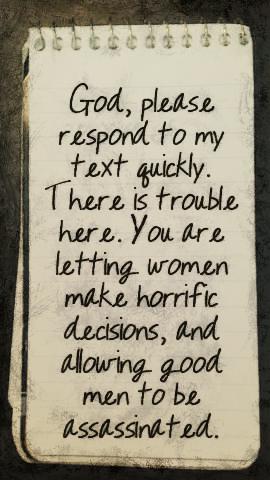 God, please
respond to my
text quickly.
There is trouble
here. You are
letting women
make horrific
decisions, and
allowing good
men to be
assassinated.